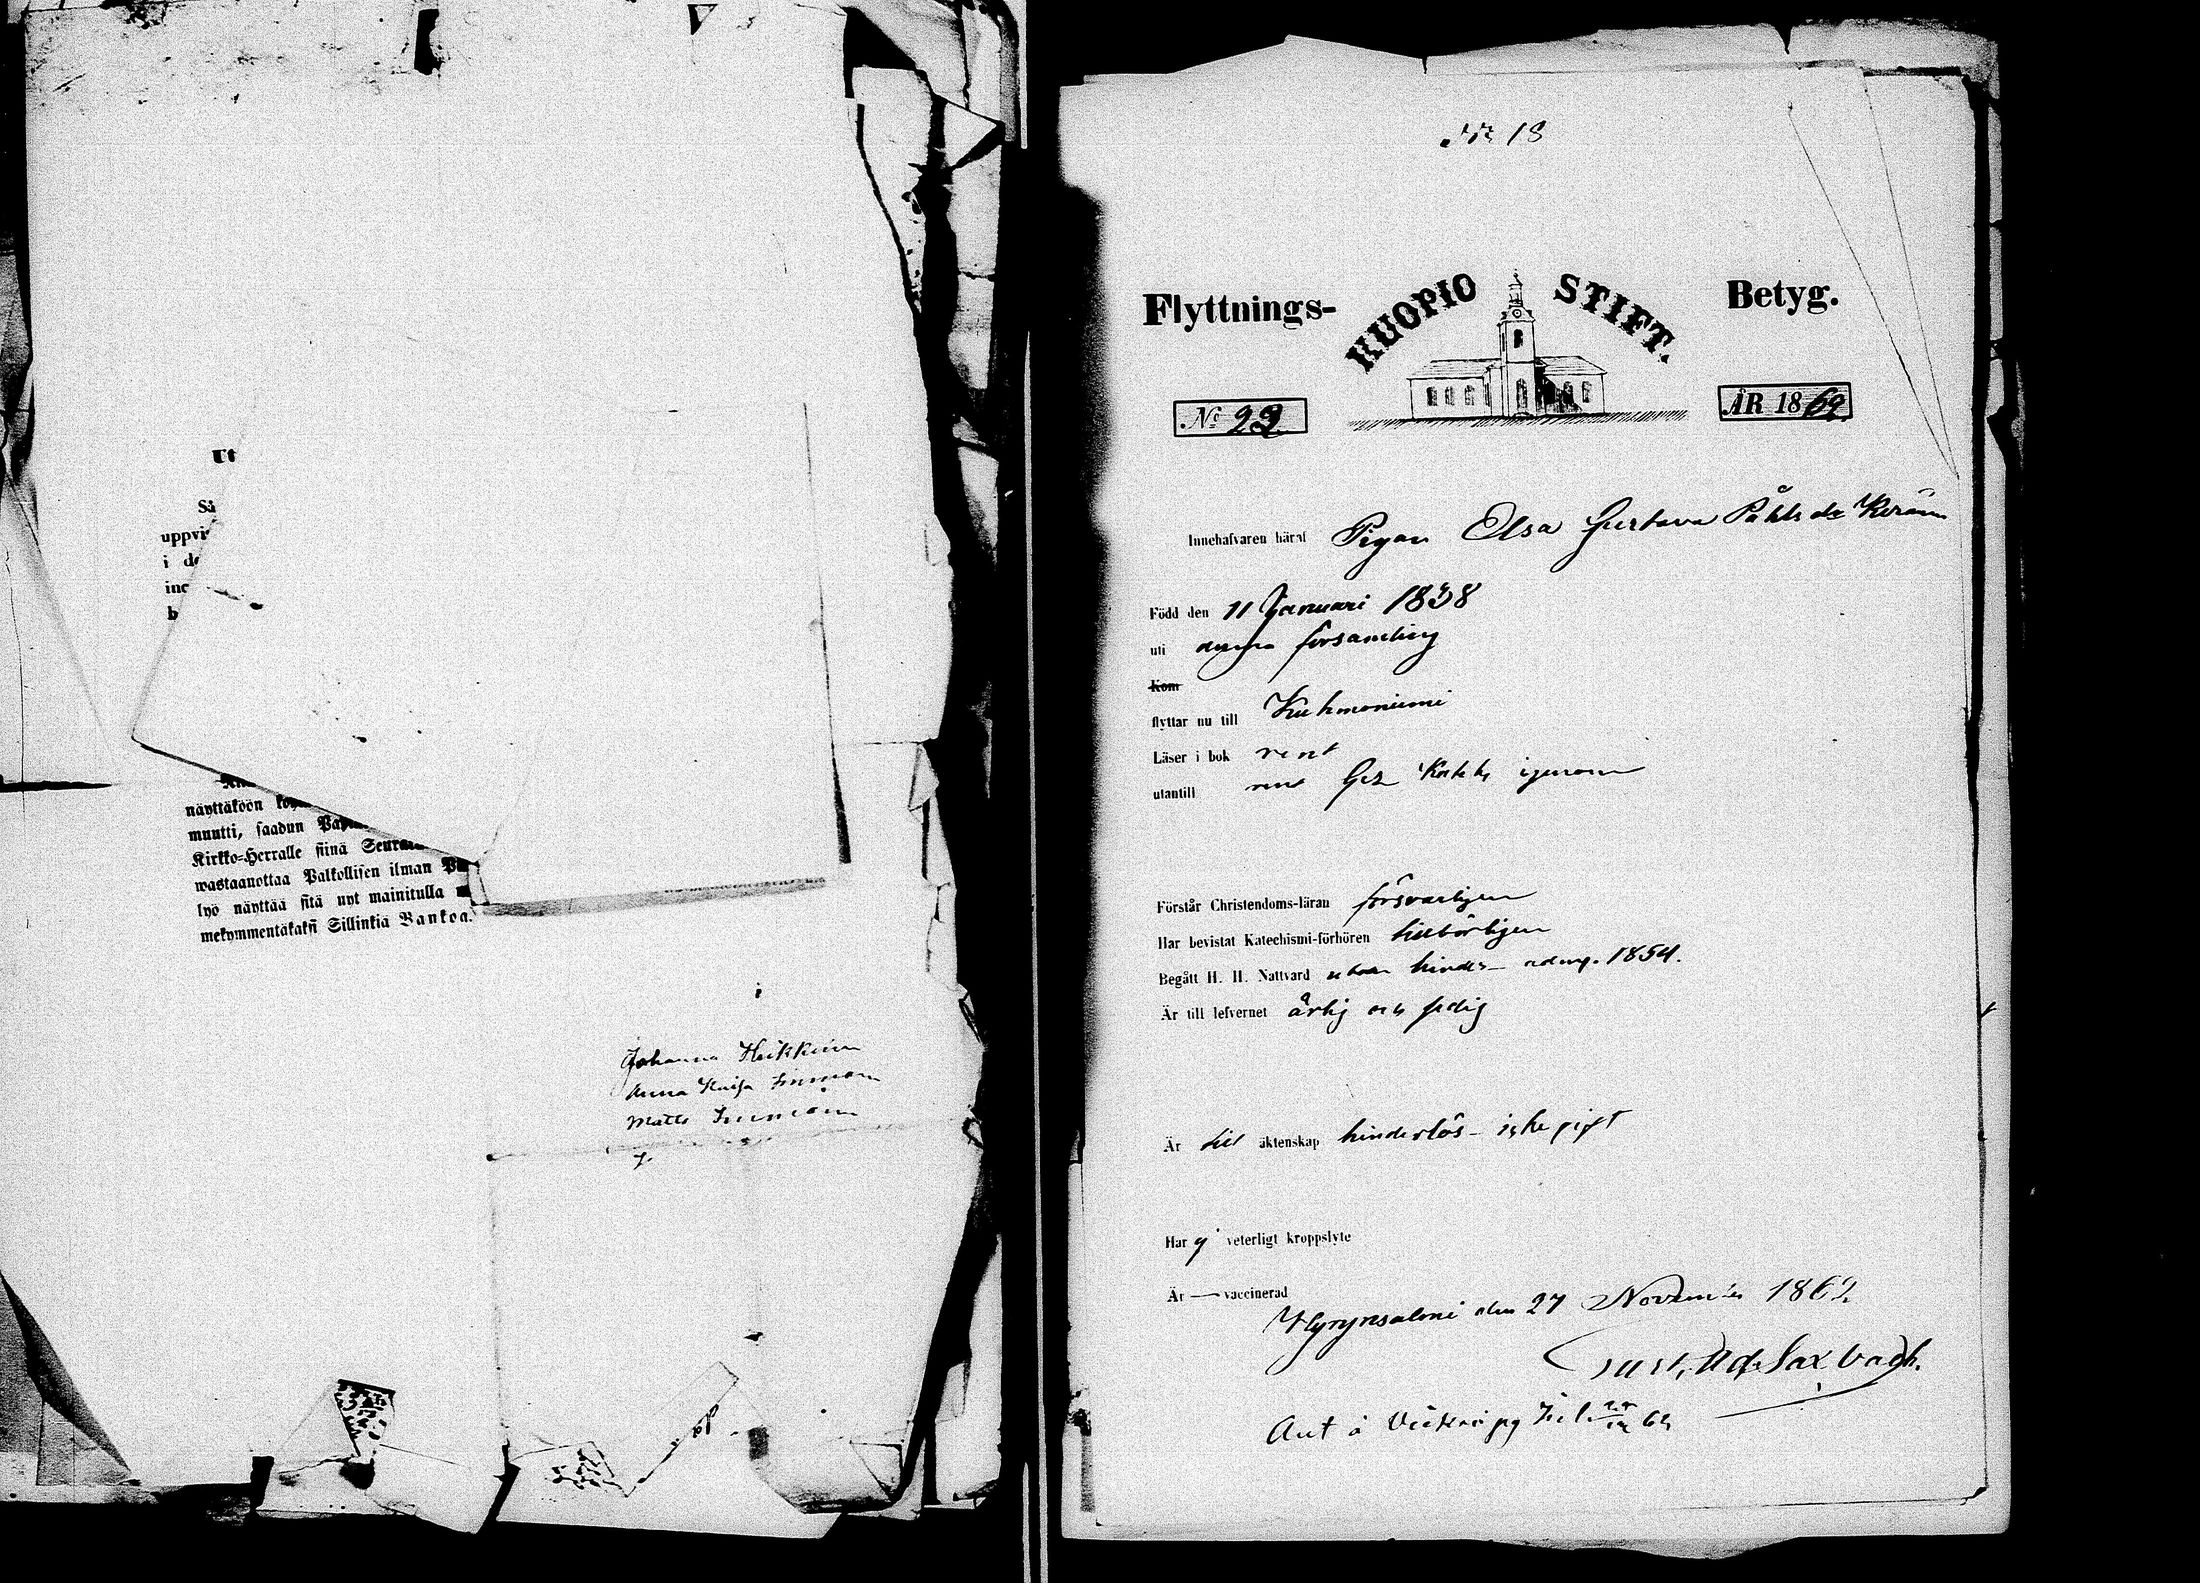 Ut
Så
uppvi
i de
inc
b
näyttäköön
muutti, saadun
Kirkko-Herralle siinä
wastaanottaa Palkollisen ilman
lyö näyttää sitä nyt mainitulla
mekymmentäkaksi Sillinkiä Bankoa.
Johanna Heikkinen
Anna Kaisa
Matts
N:o 18
Flyttnings- KUOPIO STIFT. Betyg.
No 22 ÅR 1862
Innehafvaren häraf Pigan Elsa Gustava Påhlsdr Keränen
Född den 11 Januari 1838
uti denna församling
Kom
flyttar nu till Kuhmoniemi
Läser i bok rent
utantill igenom
Förstår Christendoms-läran försvarligen
Har bevistat Katechismi-förhören tillbörligen
Begått H. H. Nattvard utan hinder admg. 1854.
Är till lefvernet ärlig och sedig
Är till äktenskap hinderlös icke gift
Har ej veterligt kroppslyte
Är — vaccinerad
Hyrynsalmi den 27 November 1862
Gust. Ad. Saxbäck.
Ant å